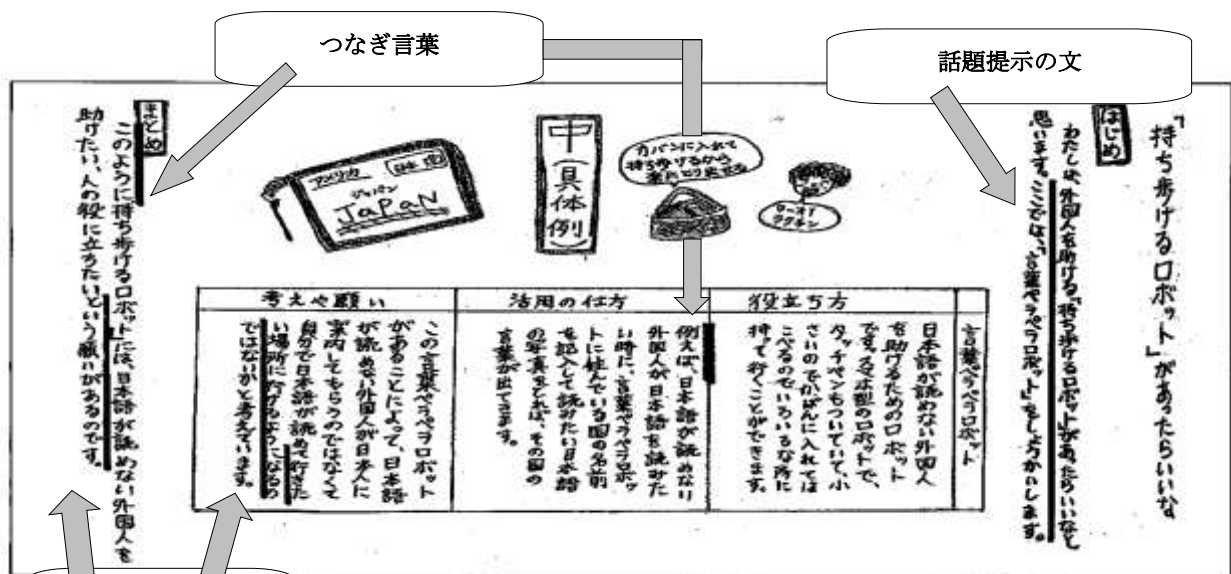 つなぎ言葉
話題提示の文
「持ち歩けるロボット」があったらいいな
はじめ
わたしは、外国人を助ける「持ち歩けるロボット」があったらいいなと
思います。ここでは、「言葉ペラペラロボット」をしょうかいします。
中(具体例)
カバンに入れて
持ち歩けるから
アメリカ
日本
ジャパン
JaPaN
言葉ペラペラロボット
役立ち方
日本語が読めない外国人
を助けるためのロボット
です。スマホ型のロボットで、
タッチペンもついていて、小
さいのでかばんに入れてはこ
べるのでいろいろな所に
持って行くことができます。
活用の仕方
例えば、日本語が読めない
外国人が日本語を読みた
い時に、言葉ペラペラロボッ
トに住んでいる国の名前
を記入して読みたい日本語
の写真をとれば、その国の
言葉が出てきます。
考えや願い
この言葉ペラペラロボット
があることによって、日本語
が読めない外国人が日本人に
案内してもらうのではなくて
自分で日本語が読めて行きた
い場所に行けるようになるの
ではないかと考えています。
まとめ
このように持ち歩けるロボットには、日本語が読めない外国人を
助けたい、人の役に立ちたいという願いがあるのです。